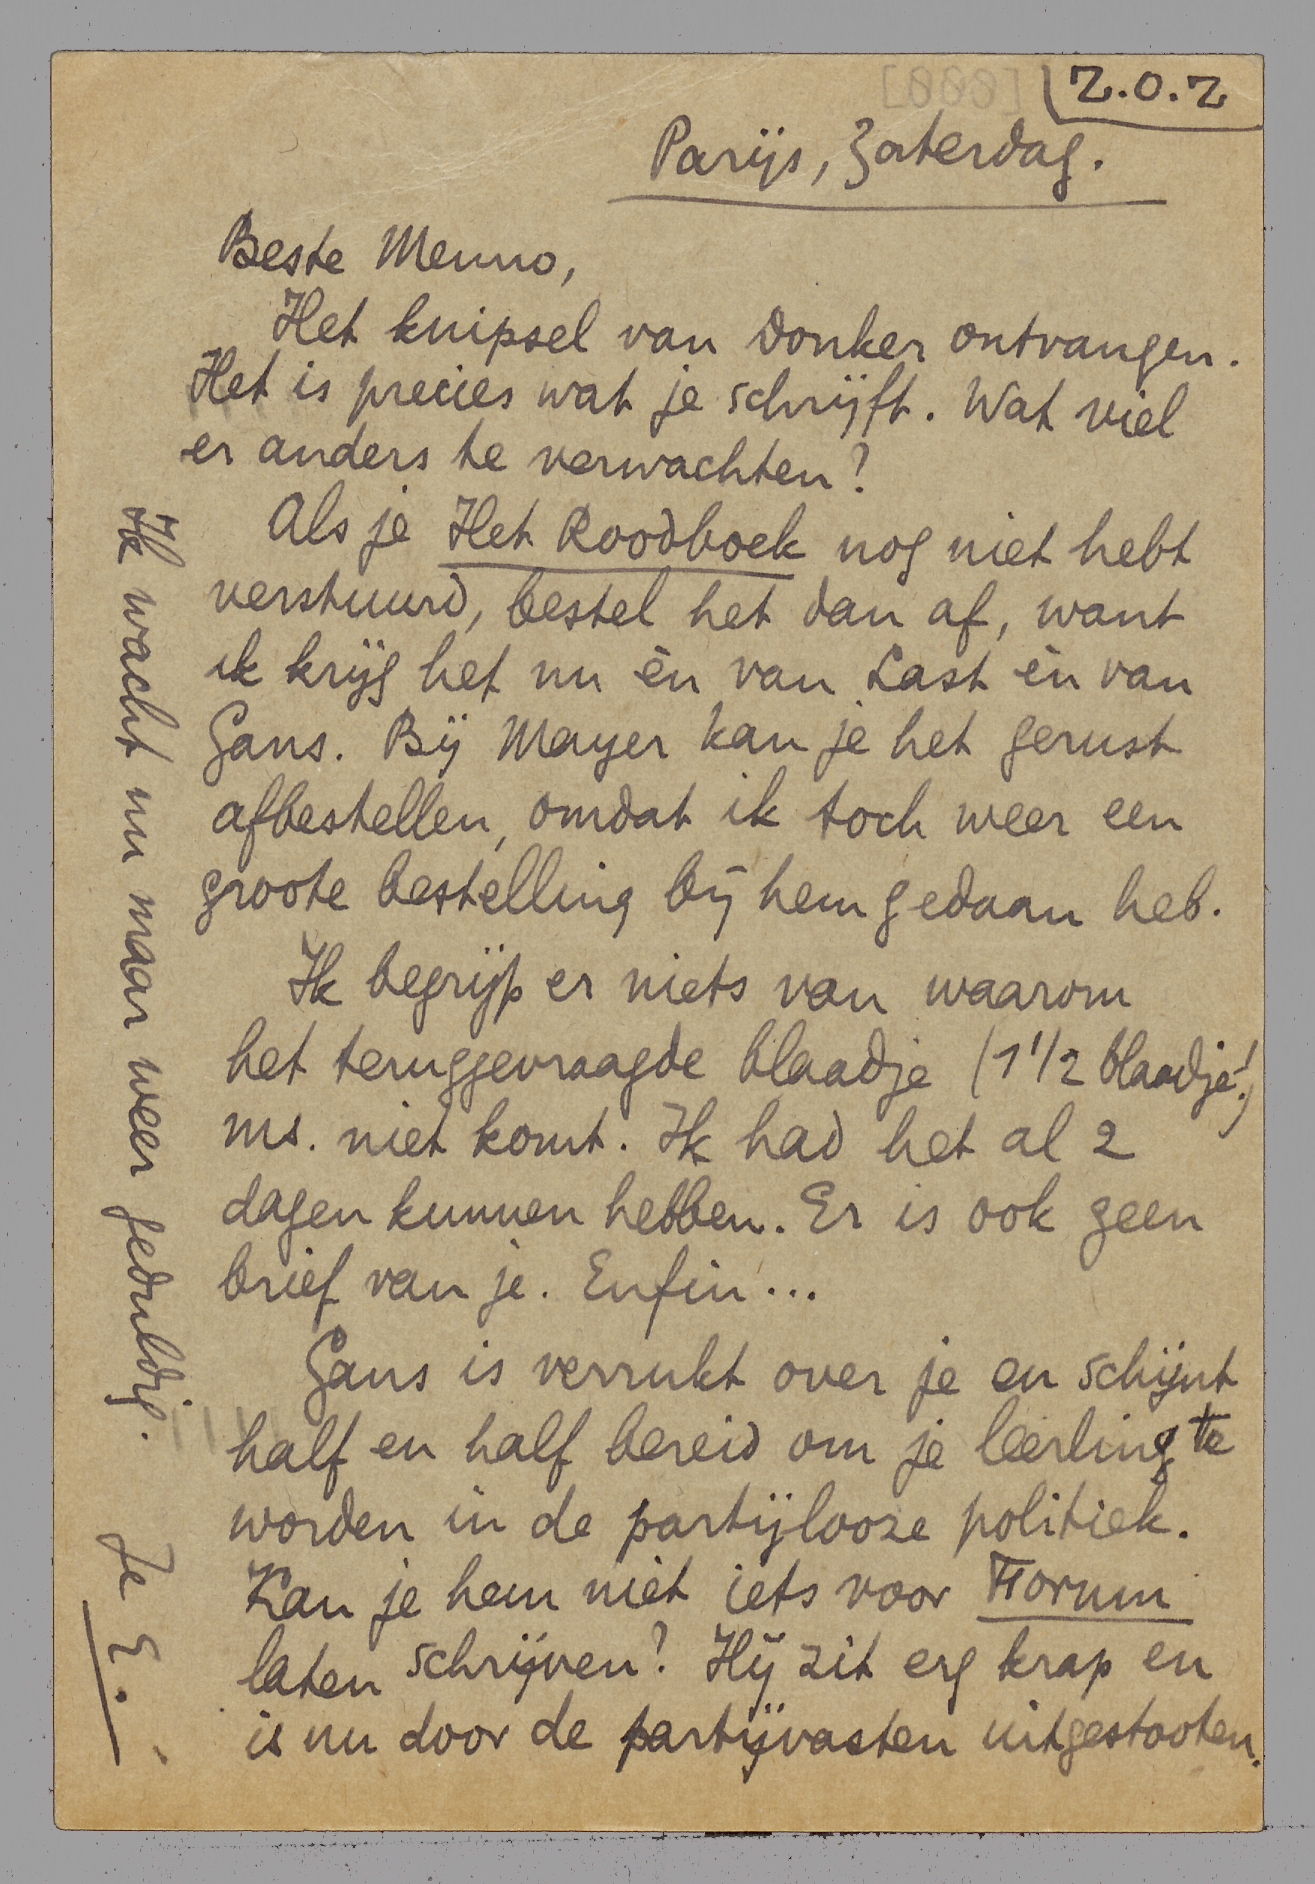 Z.O.Z
Parijs, Zaterdag.
Beste Menno,
Het knipsel van Donker ontvangen.
Het is precies wat je schrijft. Wat viel
er anders te verwachten?
Als je Het Roodboek nog niet hebt
verstuurd, bestel het dan af, want
ik krijg het nu èn van Last èn van
Gans. Bij Mayer kan je het gerust
afbestellen, omdat ik toch weer een
groote bestelling bij hem gedaan heb.
Ik begrijp er niets van waarom
het teruggevraagde blaadje (1 1/2 blaadje!)
ms. niet komt. Ik had het al 2
dagen kunnen hebben. Er is ook geen
brief van je. Enfin...
Gans is verrukt over je en schijnt
half en half bereid om je leerling te
worden in de partijlooze politiek.
Kan je hem niet iets voor Forum
laten schrijven? Hij zit erg krap en
is nu door de partijvasten uitgestooten.
Ik wacht nu maar weer geduldig. Je E.